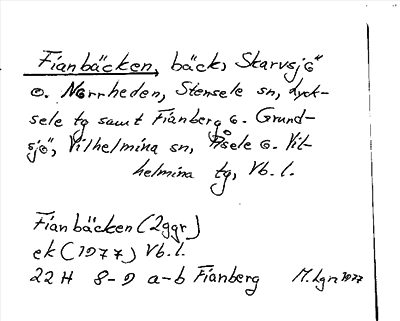 Fianbäcken, bäck, Skarvsjö"
o. Norrheden, Stensele sn, Lyck-
sele tg samt Fianberg o. Grund-
sjö", Vilhelmina sn, Åsele o. Vil-
helmina tg, Vb. l.
Fianbäcken (2ggr)
ek (1977) Vb. l.
22 H 8-9 a-b Fianberg M. Lgn 1977